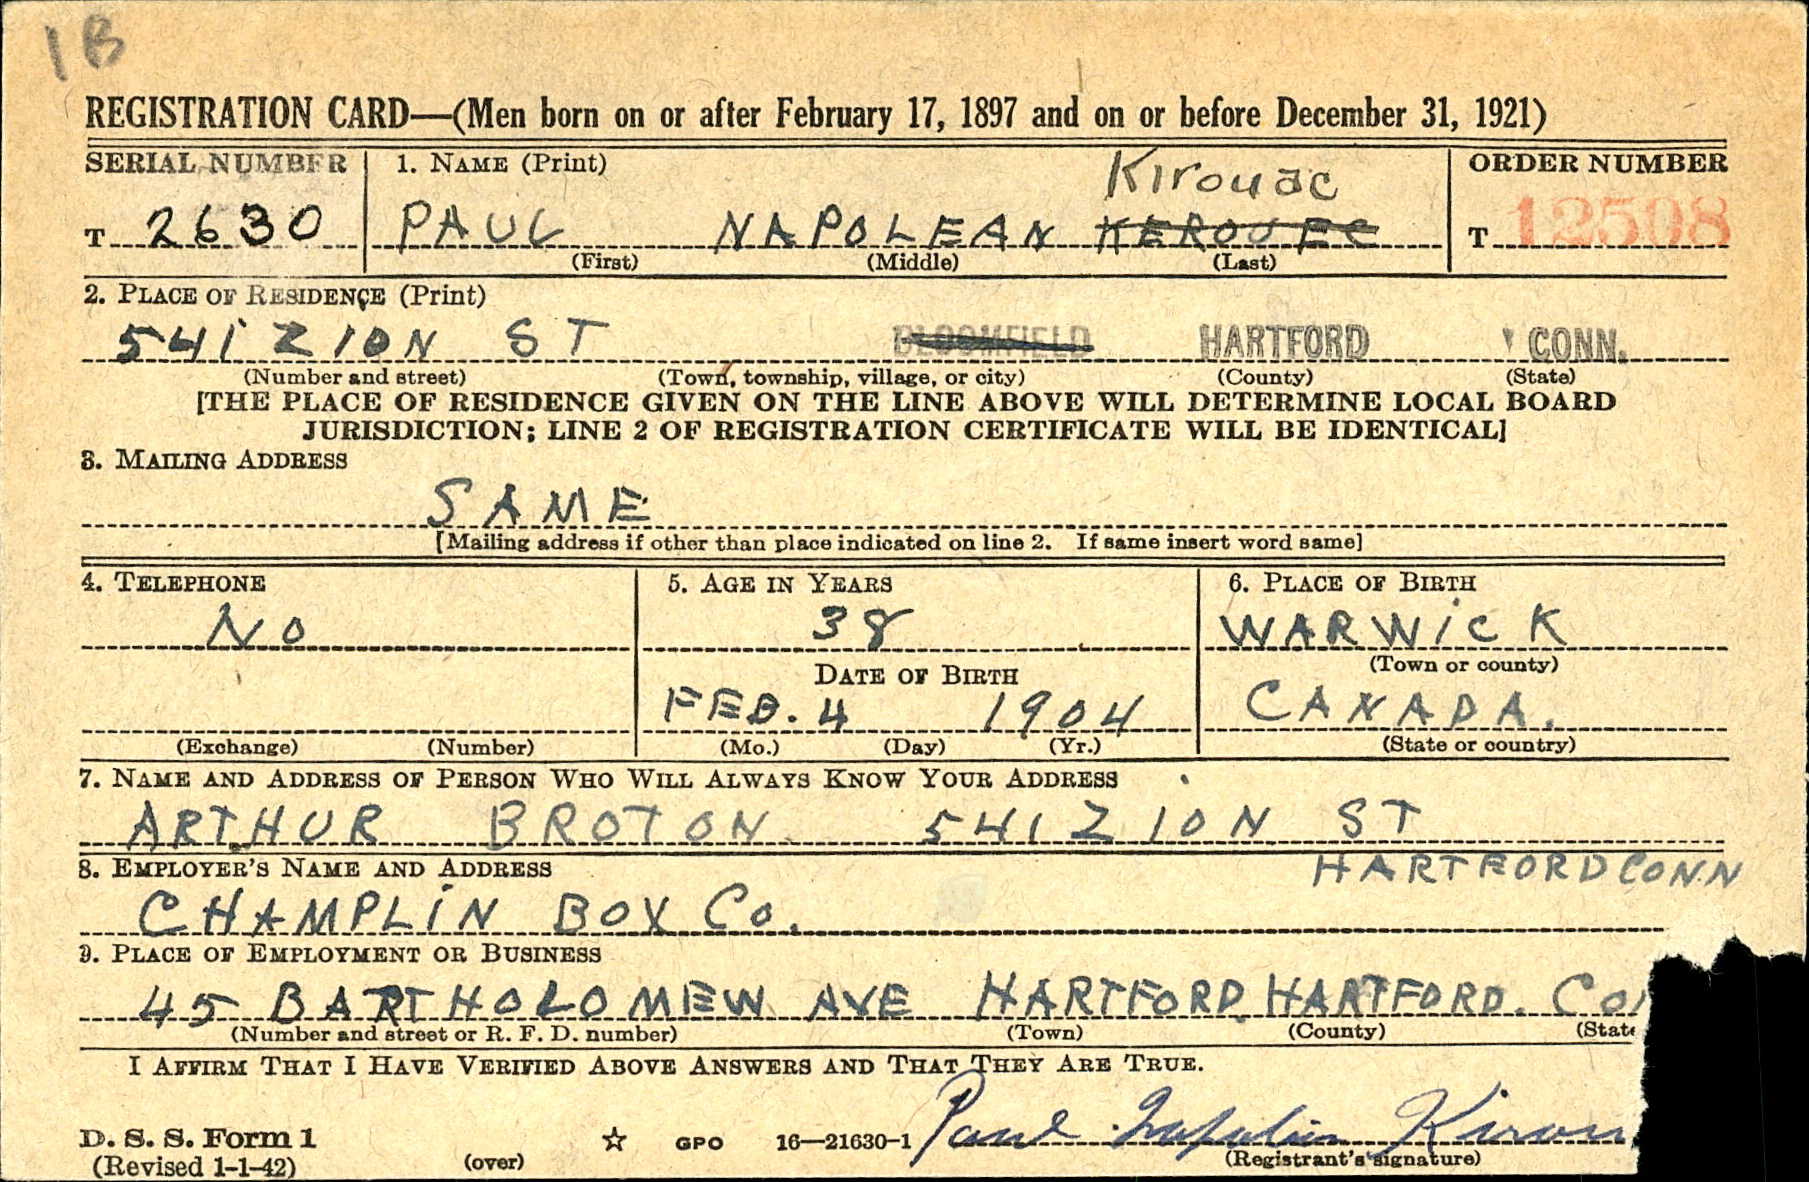 1B
REGISTRATION CARD—(Men born on or after February 17, 1897 and on or before December 31, 1921)
SERIAL NUMBER 1. NAME (Print) ORDER NUMBER
Kirouac
T 2630 PAUL NAPOLEAN KEROUEC T 12508
(First) (Middle) (Last)
2. PLACE OF RESIDENCE (Print)
541 ZION ST BLOOMFIELD HARTFORD CONN.
(Number and street) (Town, township, village, or city) (County) (State)
[THE PLACE OF RESIDENCE GIVEN ON THE LINE ABOVE WILL DETERMINE LOCAL BOARD
JURISDICTION; LINE 2 OF REGISTRATION CERTIFICATE WILL BE IDENTICAL]
3. MAILING ADDRESS
SAME
[Mailing address if other than place indicated on line 2. If same insert word same]
4. TELEPHONE 5. AGE IN YEARS 6. PLACE OF BIRTH
NO 38 WARWICK
DATE OF BIRTH (Town or county)
FEB. 4 1904 CANADA.
(Exchange) (Number) (Mo.) (Day) (Yr.) (State or country)
7. NAME AND ADDRESS OF PERSON WHO WILL ALWAYS KNOW YOUR ADDRESS
ARTHUR BROTON 541 ZION ST
8. EMPLOYER'S NAME AND ADDRESS HARTFORD CONN
CHAMPLIN BOX Co.
9. PLACE OF EMPLOYMENT OR BUSINESS
45 BARTHOLOMEW AVE HARTFORD HARTFORD. Con
(Number and street or R. F. D. number) (Town) (County) (State
I AFFIRM THAT I HAVE VERIFIED ABOVE ANSWERS AND THAT THEY ARE TRUE.
Paul Napoleon Kirou
D. S. S. Form 1 GPO 16—21630-1
(Revised 1-1-42) (over) (Registrant's signature)